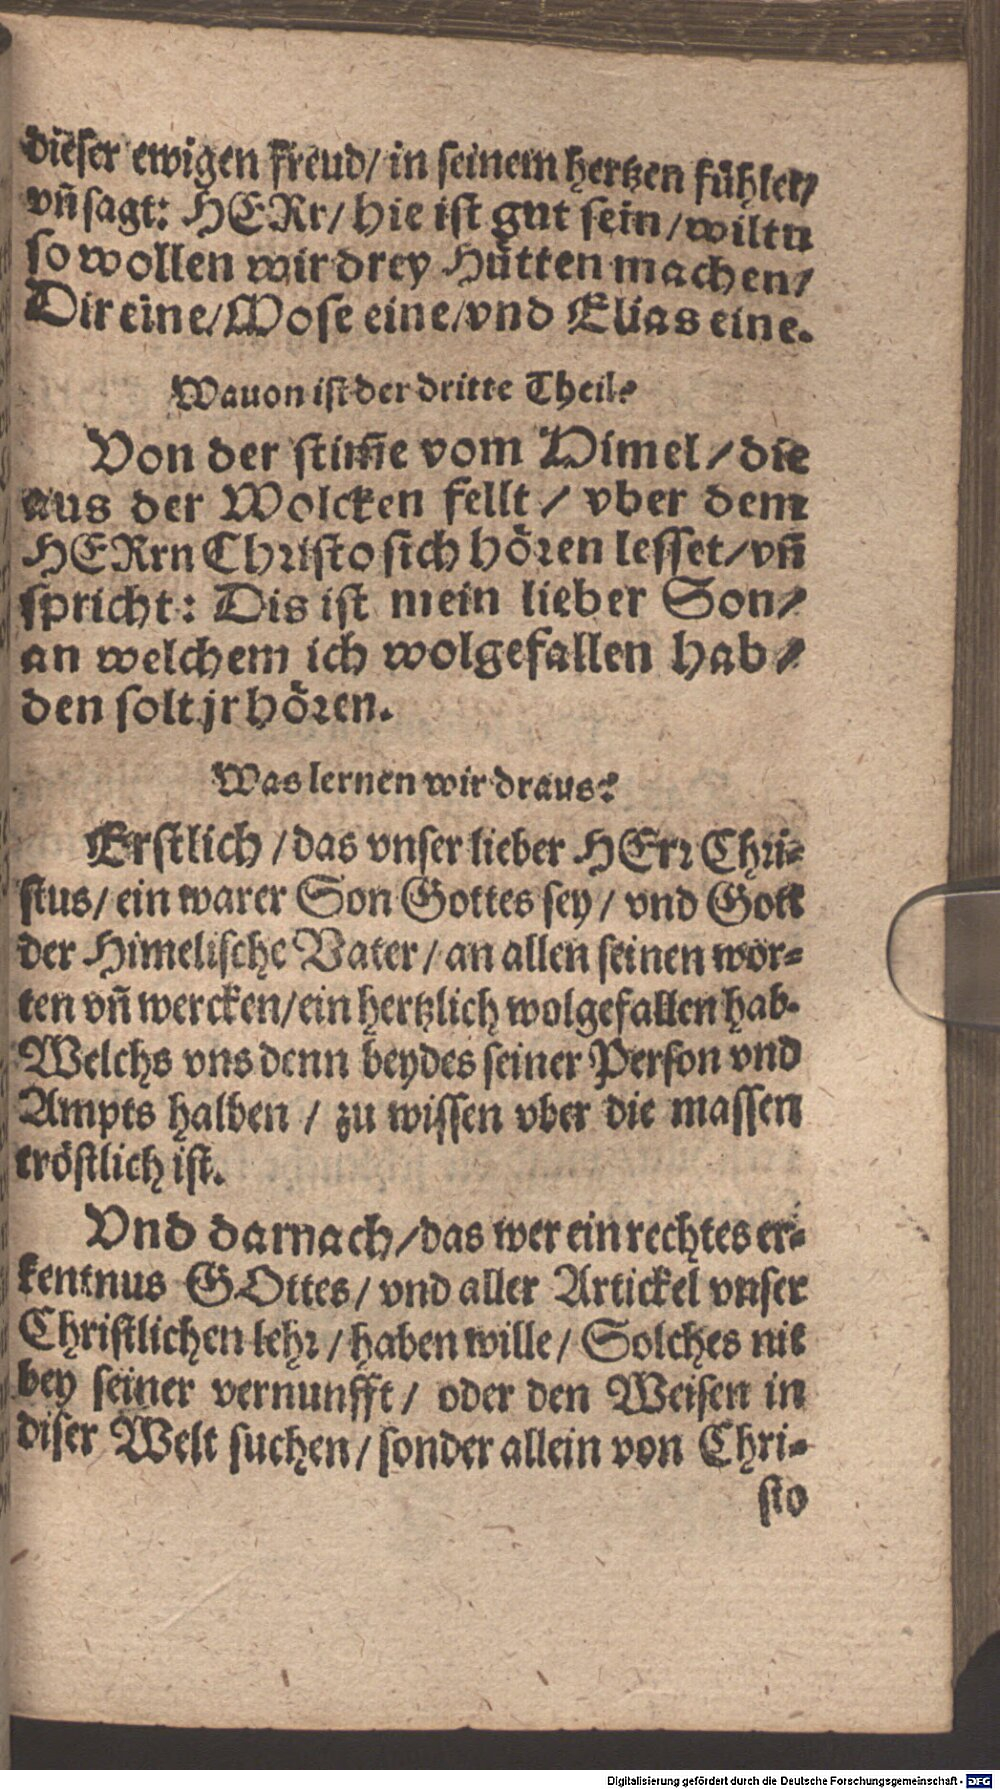 dieser ewigen freud/ in seinem hertzen fühlet/
vñ sagt: HERr/ hie ist gut sein/ wiltu
so wollen wir drey Hütten machen/
Dir eine/ Mose eine/ vnd Elias eine.
Wauon ist der dritte Theil?
Von der stim̃e vom Himel/ die
aus der Wolcken fellt/ vber dem
HERrn Christo sich hören lesset/ vñ
spricht: Dis ist mein lieber Son/
an welchem ich wolgefallen hab/
den solt jr hören.
Was lernen wir draus?
Erstlich/ das vnser lieber HErr Chri-
stus/ ein warer Son Gottes sey/ vnd Gott
der Himelische Vater/ an allen seinen wor-
ten vñ wercken/ ein hertzlich wolgefallen hab.
Welchs vns denn beydes seiner Person vnd
Ampts halben/ zu wissen vber die massen
tröstlich ist.
Vnd darnach/ das wer ein rechtes er-
kentnus GOttes/ vnd aller Artickel vnser
Christlichen lehr/ haben wille/ Solches nit
bey seiner vernunfft/ oder den Weisen in
diser Welt suchen/ sonder allein von Chri-
sto
Digitalisierung gefördert durch die Deutsche Forschungsgemeinschaft - DFG